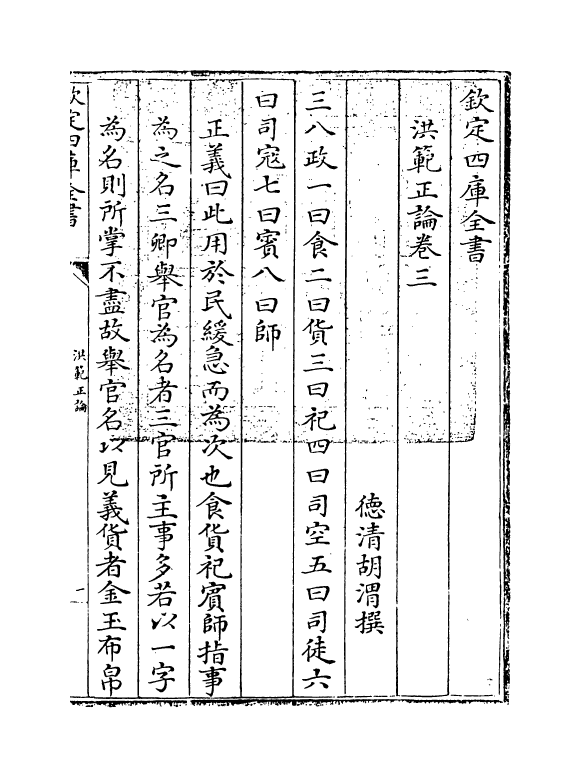 欽定四庫全書
洪範正論卷三
德清胡渭撰
三八政一曰食二曰貨三曰祀四曰司空五曰司徒六
曰司寇七曰賓八曰師
正義曰此用於民緩急而為次也食貨祀賓師指事
為之名三卿舉官為名者三官所主事多若以一字
為名則所掌不盡故舉官名以見義貨者金玉布帛
欽定四庫全書
洪範正論
一